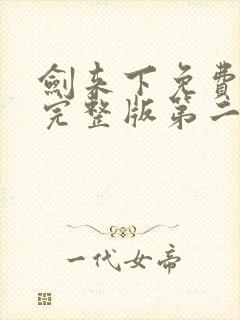 劍來下免費
完整版第二
一代女帝